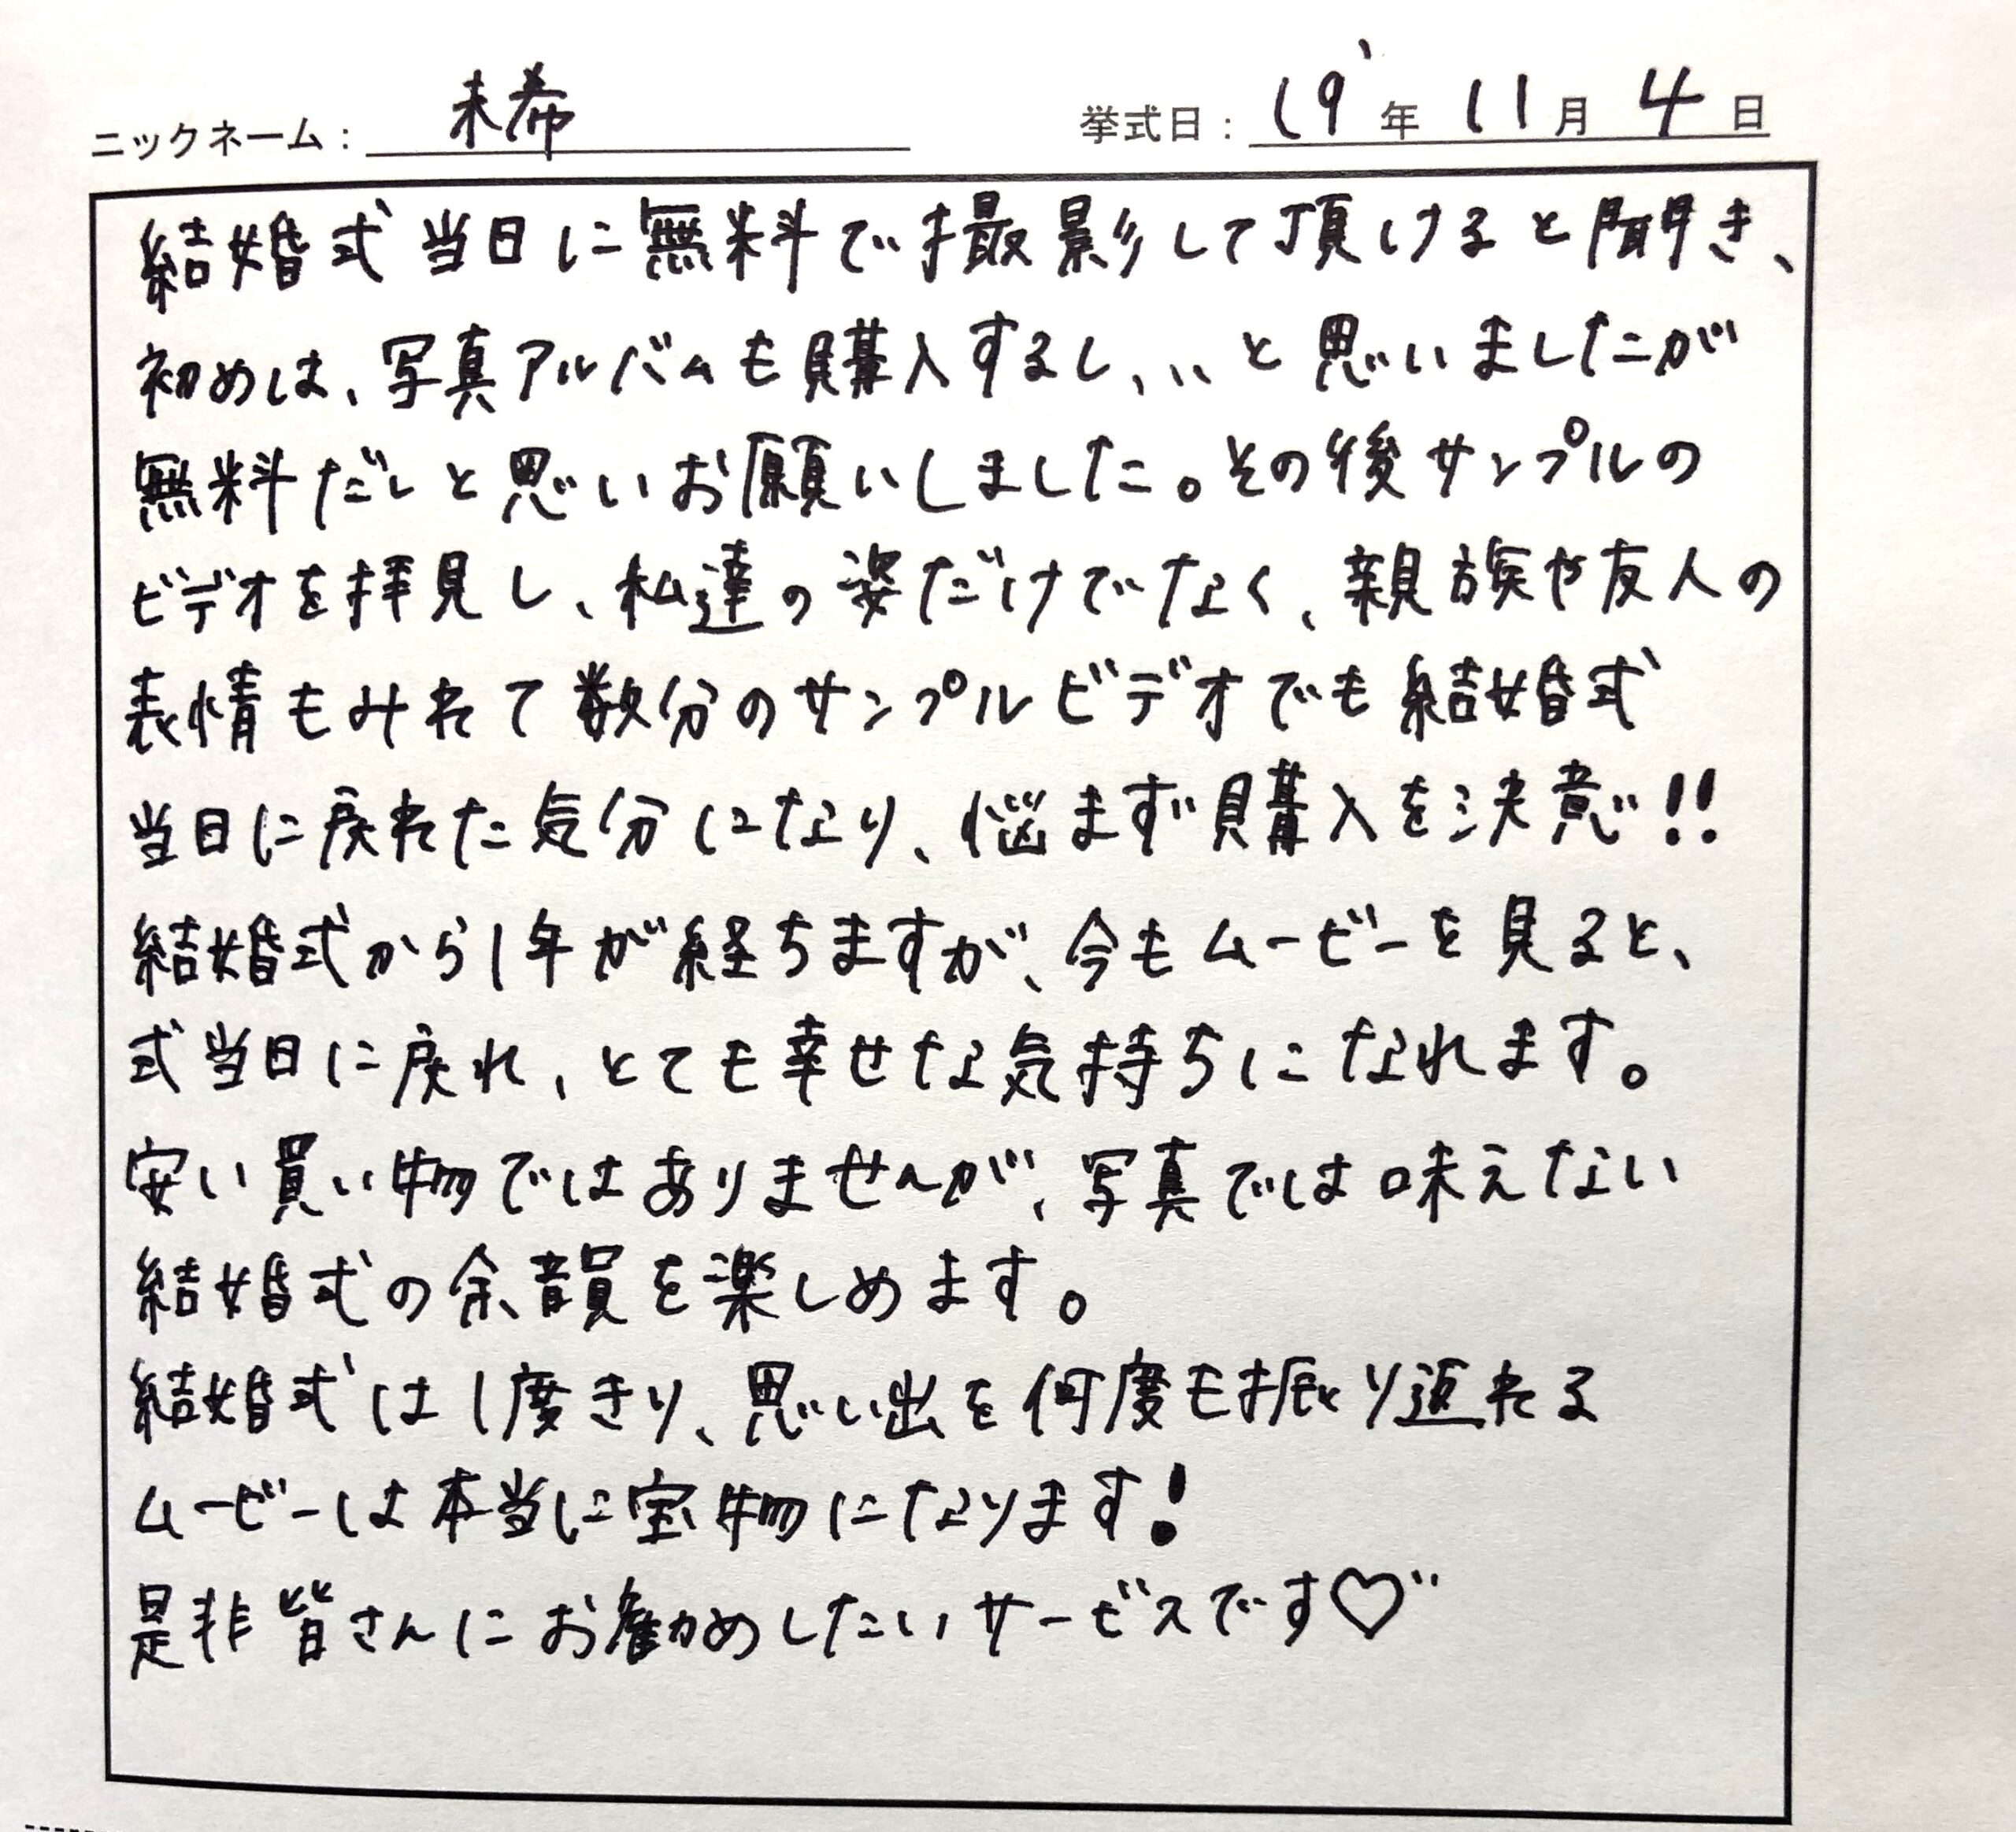 ニックネーム：未希 挙式日：19'年11月4日
結婚式当日に無料で撮影して頂けると聞き、
初めは、写真アルバムも購入するし、、、と思いましたが
無料だしと思いお願いしました。その後サンプルの
ビデオを拝見し、私達の姿だけでなく、親族や友人の
表情もみれて数分のサンプルビデオでも結婚式
当日に戻れた気分になり、悩まず購入を決意!!
結婚式から1年が経ちますが、今もムービーを見ると、
式当日に戻れ、とても幸せな気持ちになれます。
安い買い物ではありませんが、写真では味えない
結婚式の余韻を楽しめます。
結婚式は1度きり、思い出を何度も振り返れる
ムービーは本当に宝物になります!
是非皆さんにお勧めしたいサービスです♡